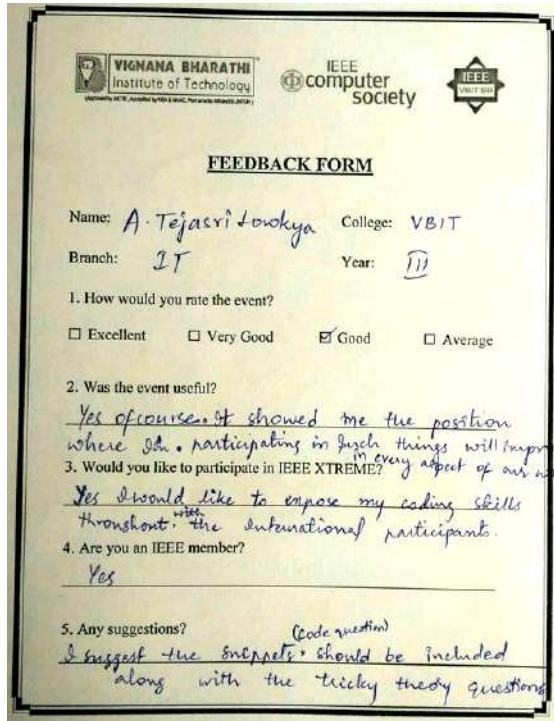 VIGNANA BHARATHI
Institute of Technology
IEEE
computer
society
IEEE
VBIT SB
FEEDBACK FORM
Name: A. Tejasri Lowkya College: VBIT
Branch: IT Year: III
1. How would you rate the event?
☐ Excellent ☐ Very Good ☑ Good ☐ Average
2. Was the event useful?
Yes ofcourse. It showed me the position
where I'm. participating in such things will
in every aspect of our
3. Would you like to participate in IEEE XTREME?
Yes I would like to expose my coding skills
with
throughout the International participants.
4. Are you an IEEE member?
Yes
5. Any suggestions?
(code question)
I suggest the snippets. should be included
along with the tricky theory questions